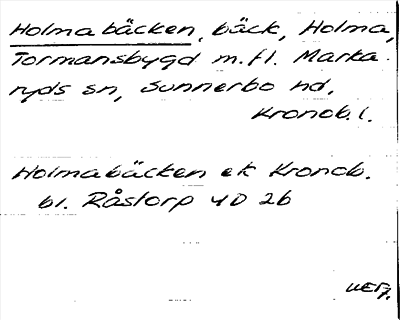 Holmabäcken, bäck, Holma,
Tormansbygd m.fl. Marka-
ryds sn, Sunnerbo hd,
Kronob. l.
Holmabäcken ek Kronob.
bl. Råstorp 4D 2b